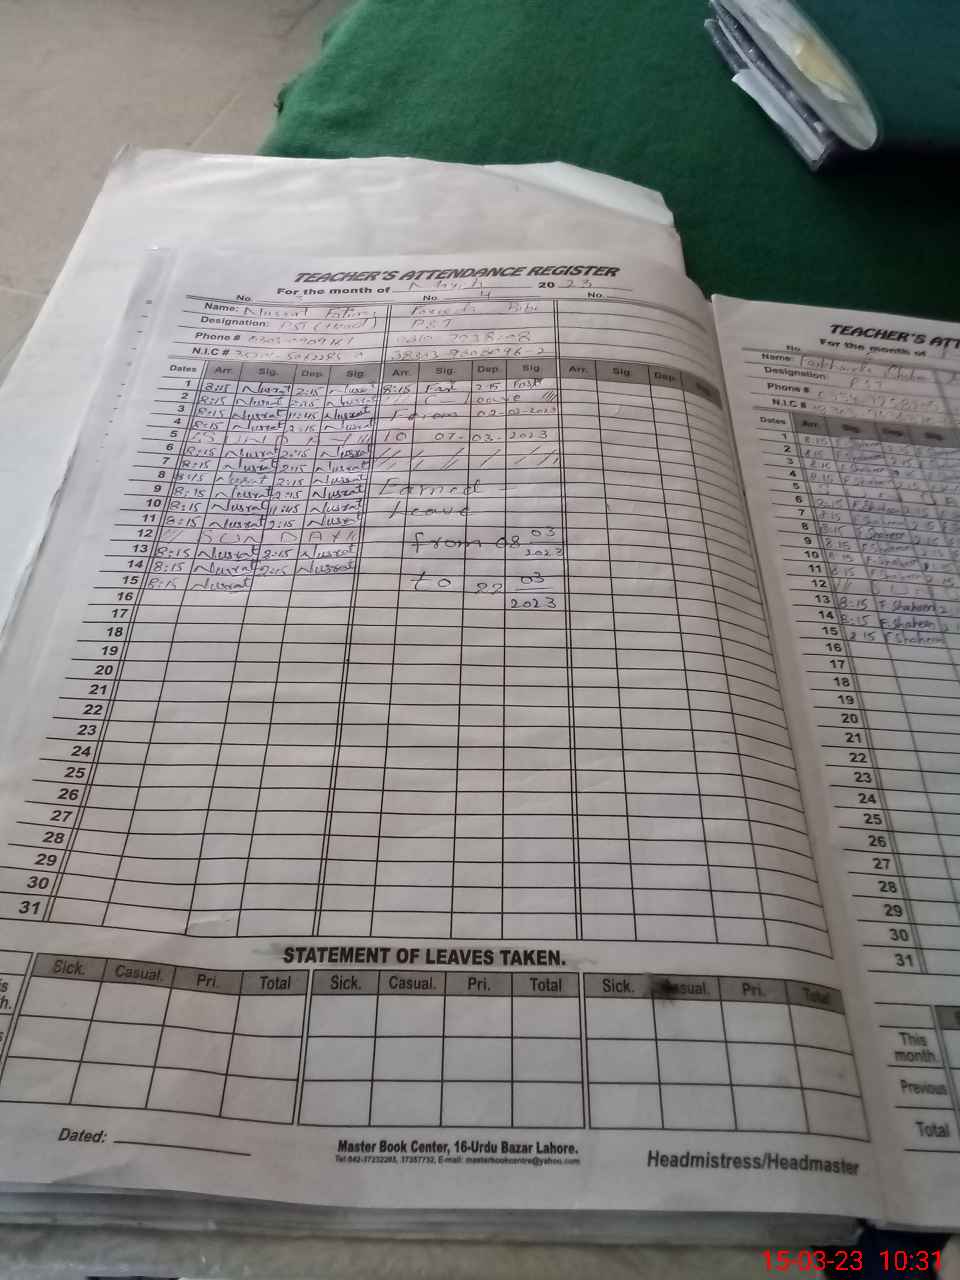 TEACHER'S ATTENDANCE REGISTER
For the month of March 2023
No. 3 No. 4 No.
Name: Nusrat
Designation: PST (Head) PST
Phone #
N.I.C #
Dates Arr. Sig. Dep. Sig. Arr. Sig. Dep. Sig Arr. Sig. Dep.
1 8:15 Nusrat 2:15 Nusrat 8:15 2:15
2 8:15 Nusrat 2:15 Nusrat C- leave
3 8:15 Nusrat 11:45 Nusrat From 02-03-2023
4 8:15 Nusrat 2:15 Nusrat
5 SUNDAY TO 07-03-2023
6 8:15 Nusrat 2:15 Nusrat
7 8:15 Nusrat 2:15 Nusrat
8 8:15 Nusrat 2:15 Nusrat Earned
9 8:15 Nusrat 2:15 Nusrat
10 8:15 Nusrat 11:45 Nusrat leave
11 8:15 Nusrat 2:15 Nusrat
12 SUNDAY from 08 03
13 8:15 Nusrat 2:15 Nusrat 2023
14 8:15 Nusrat 2:15 Nusrat
15 8:15 Nusrat to 22 03
16 2023
17
18
19
20
21
22
23
24
25
26
27
28
29
30
31
STATEMENT OF LEAVES TAKEN.
Sick. Casual. Pri. Total Sick. Casual. Pri. Total Sick. Pri. Total
Dated:
Master Book Center, 16-Urdu Bazar Lahore.
Tel:042-37232203, 37357732, E-mail: masterbookcentre@yahoo.com
Headmistress/Headmaster
TEACHER'S ATT
For the month of
No.
Name:
Designation: PST
Phone #
N.I.C #
Dates Arr. Sig. Dep. Sig.
1 8:15 F. Shaheen
2 8:15 F. Shaheen
3 8:15 F. Shaheen
4 8:15 F. Shaheen
5
6 F. Shaheen 2:15
7 8:15 F. Shaheen 2:15
8 8:15 Shaheen 2:15
9 8:15 F. Shaheen 2:15
10 8:15 F. Shaheen
11 8:15 F. Shaheen
12
13 8:15 F. Shaheen 2
14 8:15 F. Shaheen 2
15 2 15 F Shaheen
16
17
18
19
20
21
22
23
24
25
26
27
28
29
30
31
This
month.
Previous
Total
15-03-23 10:31